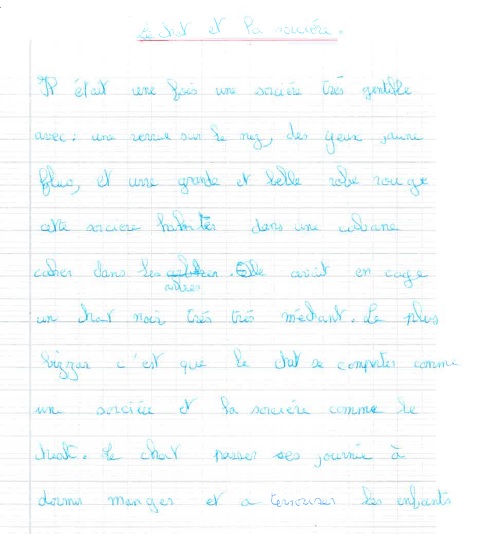 Le chat et la sorcière.
Il était une fois une sorcière très gentille
avec : une verrue sur le nez, des yeux jaune
fluo, et une grande et belle robe rouge
cette sorciere habiter dans une cabane
caher dans les arbres. Elle avait en cage
un chat noir très très méchant. Le plus
bizzar c'est que le chat se comporter comme
une sorcière et la sorcière comme le
chat. Le chat passer ses journée à
dormir manger et a terroriser les enfants